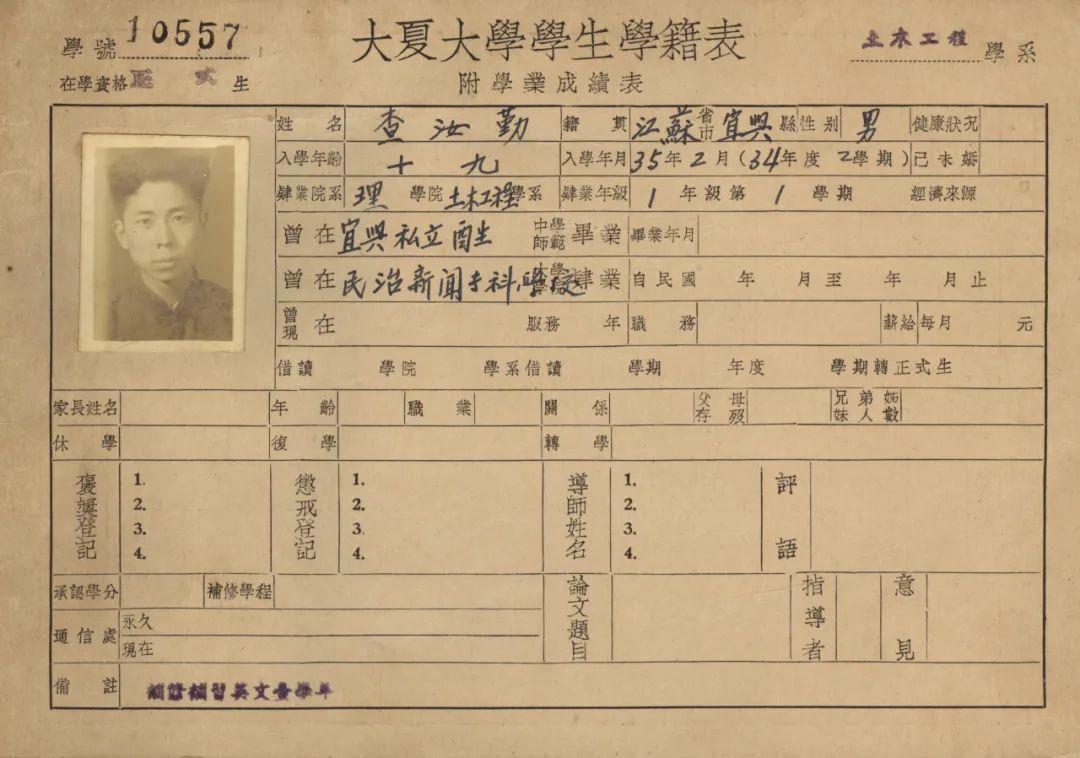 學號 10557
大夏大學學生學籍表
土木工程 學系
在學資格 正式 生
附學業成績表
姓名 查汝勤 籍貫 江蘇 省市 宜興 縣 性别 男 健康狀况
入學年齡 十九 入學年月 35年2月(34年度2學期) 已未婚
肄業院系 理 學院 土木工程 學系 肄業年級 1 年級第 1 學期 經濟來源
曾在 宜興私立 中學師範 畢業 畢業年月
曾在 民治新聞專科學校 肄業 自民國 年 月至 年 月止
曾現在 服務 年 職務 薪給每月 元
借讀 學院 學系借讀 學期 年度 學期轉正式生
家長姓名 年齡 職業 關係 父母存殁 兄弟姊妹人數
休學 復學 轉學
褒奬登記 1. 2. 3. 4. 懲戒登記 1. 2. 3. 4. 導師姓名 1. 2. 3. 4. 評語
承認學分 補修學程 論文題目 指導者 意見
通信處 永久
現在
備註 補習英文壹學年